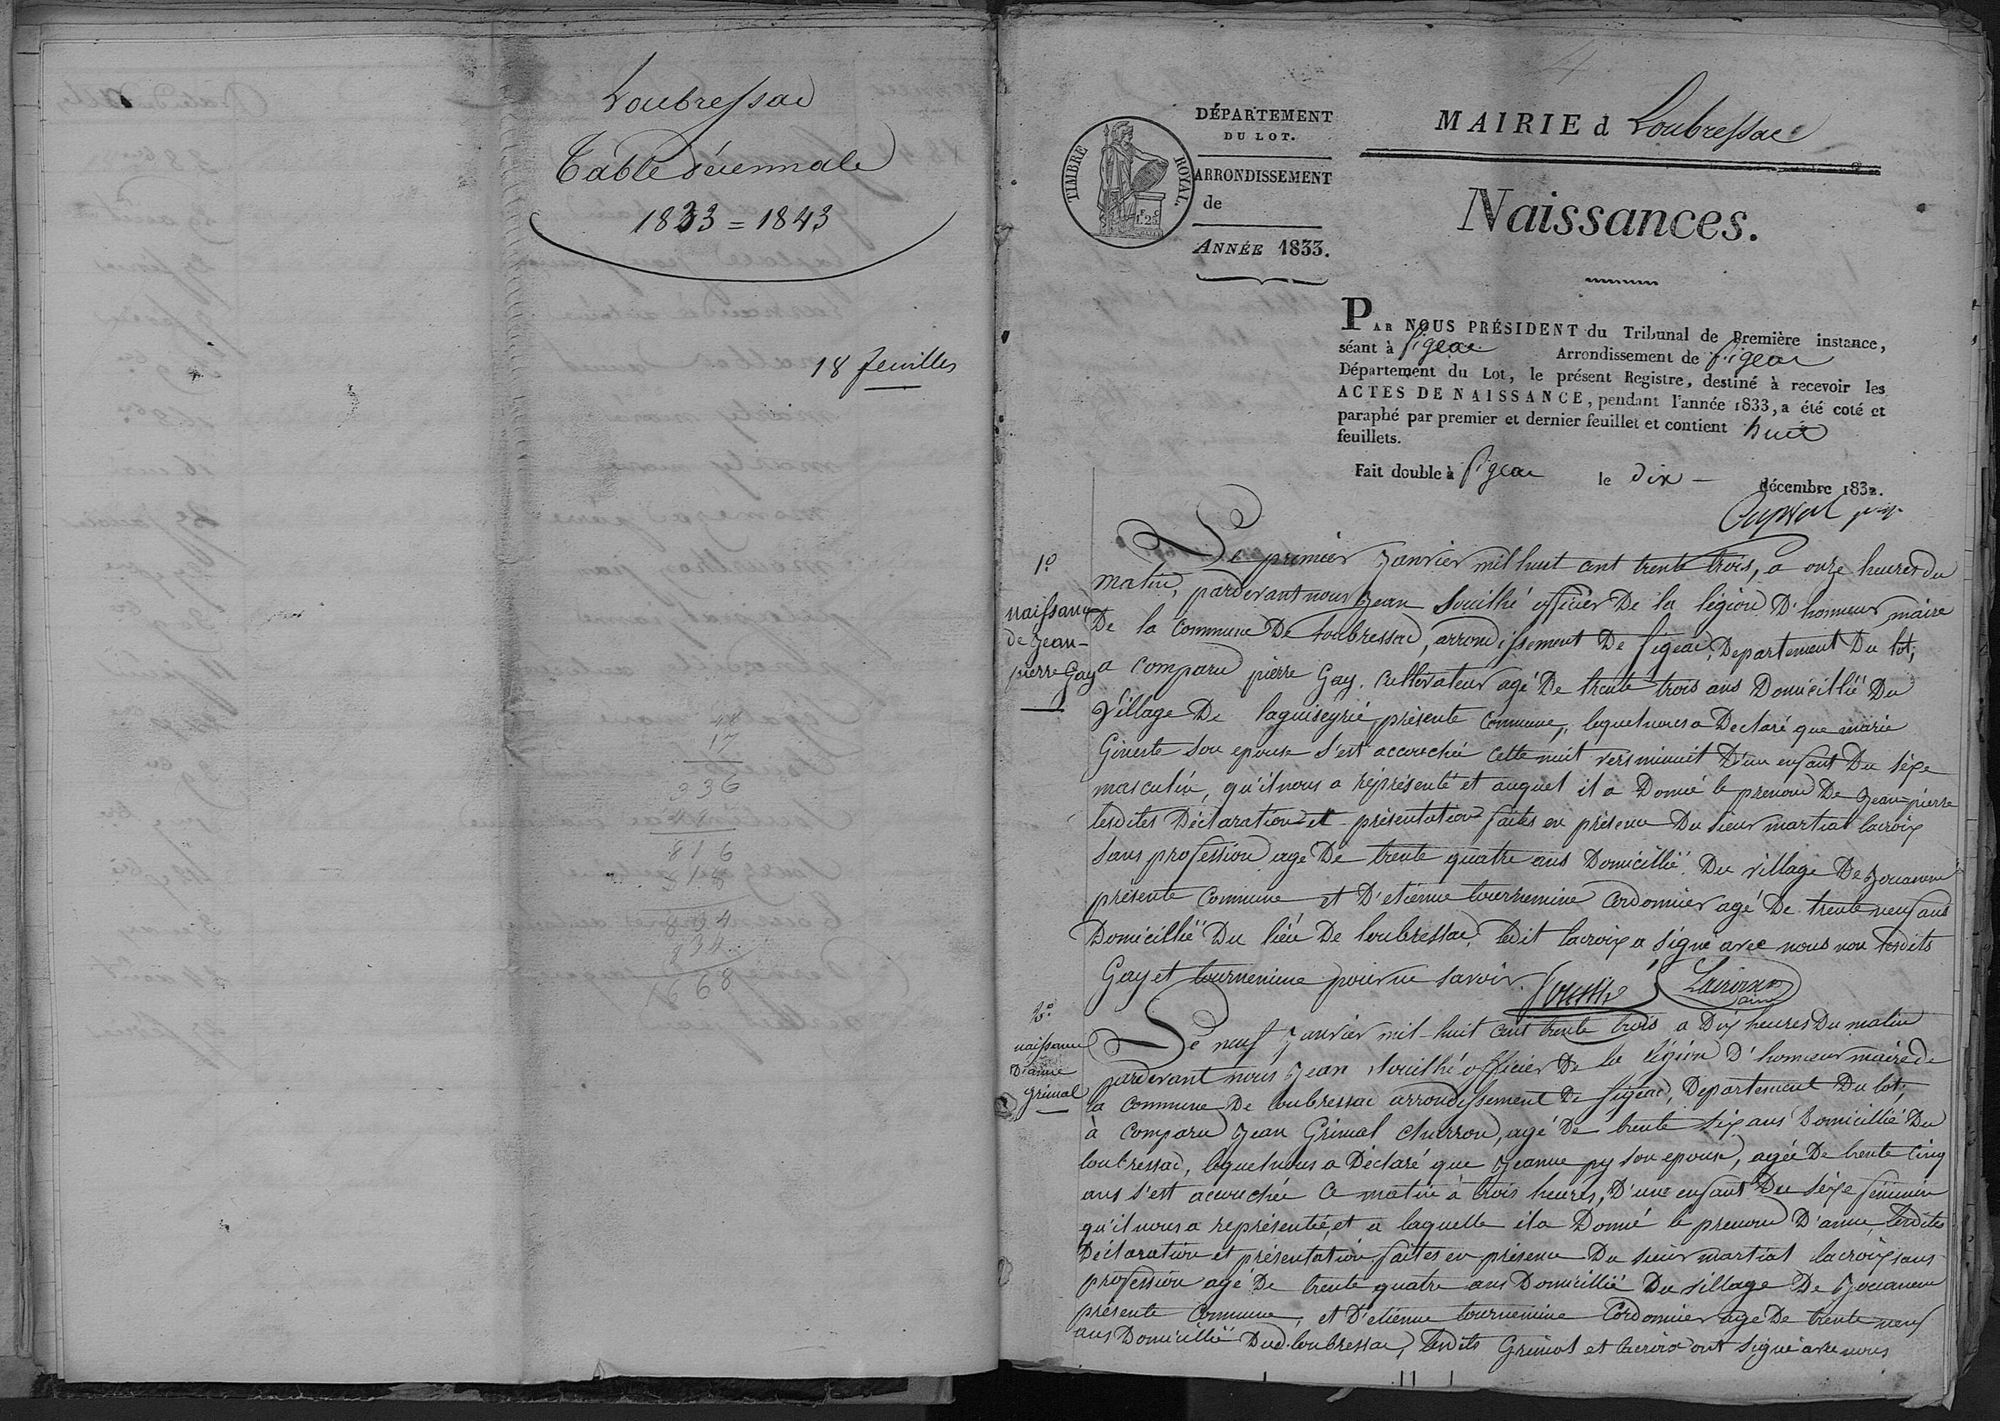 Loubressac
Table décennale
1833 = 1843
18 feuilles
17
336
816
834
834
1668
TIMBRE ROYAL.
DÉPARTEMENT
DU LOT.
ARRONDISSEMENT
de
ANNÉE 1833.
MAIRIE d Loubressac
Naissances.
PAR NOUS PRÉSIDENT du Tribunal de Première instance,
séant à figeac Arrondissement de figeac
Département du Lot, le présent Registre, destiné à recevoir les
ACTES DE NAISSANCE, pendant l'année 1833, a été coté et
paraphé par premier et dernier feuillet et contient huit
feuillets.
Fait double à figeac le dix décembre 1832.
1º
naissance
de Jean-
pierre Gay
Le premier Janvier mil huit cent trente trois, a onze heures du
matin, pardevant nous Jean Souilhé officier De la légion D'honneur maire
De la Commune De Loubressac, arrondissement De figeac, Departement Du lot,
a comparu pierre Gay, Cultivateur agé De trente trois ans Domicillié Du
Village De laguiseyrie présente Commune, lequel nous a Declaré que marie
Gineste son epouse s'est accouchée cette nuit vers minuit D'un enfant Du séxe
masculin, qu'il nous a réprésenté et auquel il a Donné le prenom De Jean pierre
lesdites Déclaration et présentation faites en présence Du sieur martial lacroix
sans profession agé De trente quatre ans Domicillié Du village De
présente Commune et D'etienne tournemine Cordonnier agé De trente neuf ans
Domicillié Du liéu De loubressac, ledit lacroix a signé avec nous non lesdits
Gay et tournemine pour ne savoir.
2º
naissance
D'anne
Grimal
Le neuf Janvier mil huit cent trente trois a Dix heures Du matin
pardevant nous Jean Souilhé officier De la légion D'honneur maire de
la Commune De loubressac arrondissement De figeac, Departement Du lot,
à comparu Jean Grimal Charron, agé De trente six ans Domicillié Du
loubressac, lequel nous a Déclaré que Jeanne py son epouse, agée De trente cinq
ans s'est accouchée Ce matin à trois heures, D'une enfant Du séxe féminin
qu'il nous a représentée, et a laquelle il a Donné le prenom D'anne, lesdites
Déclaration et présentation faites en présence Du sieur martial lacroix sans
profession agé De trente quatre ans Domicillié Du village De
présente Commune, et D'etienne tournemine Cordonnier agé De trente neuf
ans Domicillié Dud. loubressac, lesdits Grimal et lacroix ont signé avec nous